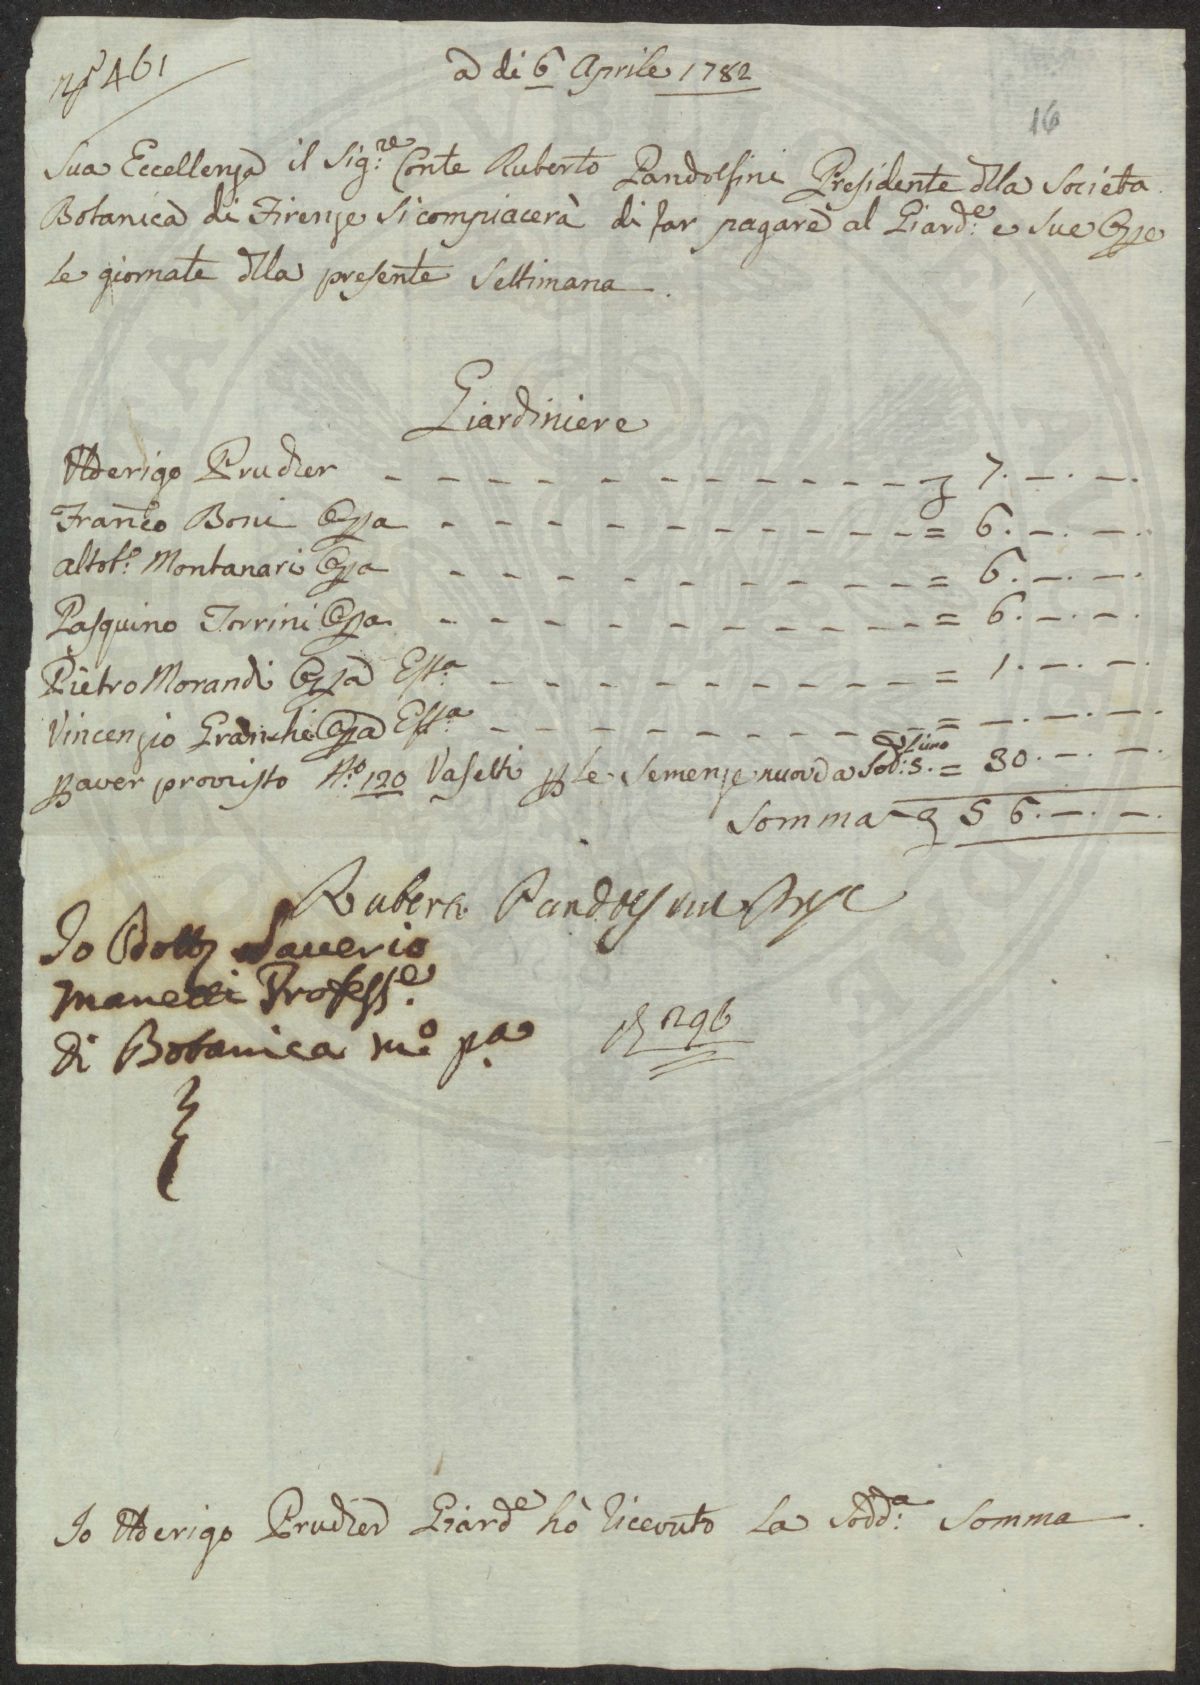 N.º 461
a di 6 Aprile 1782
16
Sua Eccellenza il Sig.re Conte Ruberto Pandolfini Presidente dlla Societa
Botanica di Firenze si compiacerà di far pagare al Giard.e e sue Opre
le giornate dlla presente Settimana.
Giardiniere
Aderigo Prucker - - - - - - - - - - - - 7. —. —.
Franco Boni Opra - - - - - - - - - - - = 6. —. —.
Montanari Opra - - - - - - - - - - = 6. —. —.
Pasquino Torrini Opra. - - - - - - - - - - = 6. —. —.
Pietro Morandi Opra Est.a - - - - - - - - - = 1. —. —.
Vincenzio Opra Est.a - - - - - - - - - = —. —. —.
aver provvisto N.º 120 Vasetti le Semenze nuove a Sol: 5. = 30. —. —.
l'uno
Somma 56. —. —.
Ruberto Pandolfini Pres
Io Dott Saverio
Manetti Profess.e
di Botanica mº pa
296
Io Aderigo Prucker Giard.e hò Ricevuto La Sodd.a Somma.